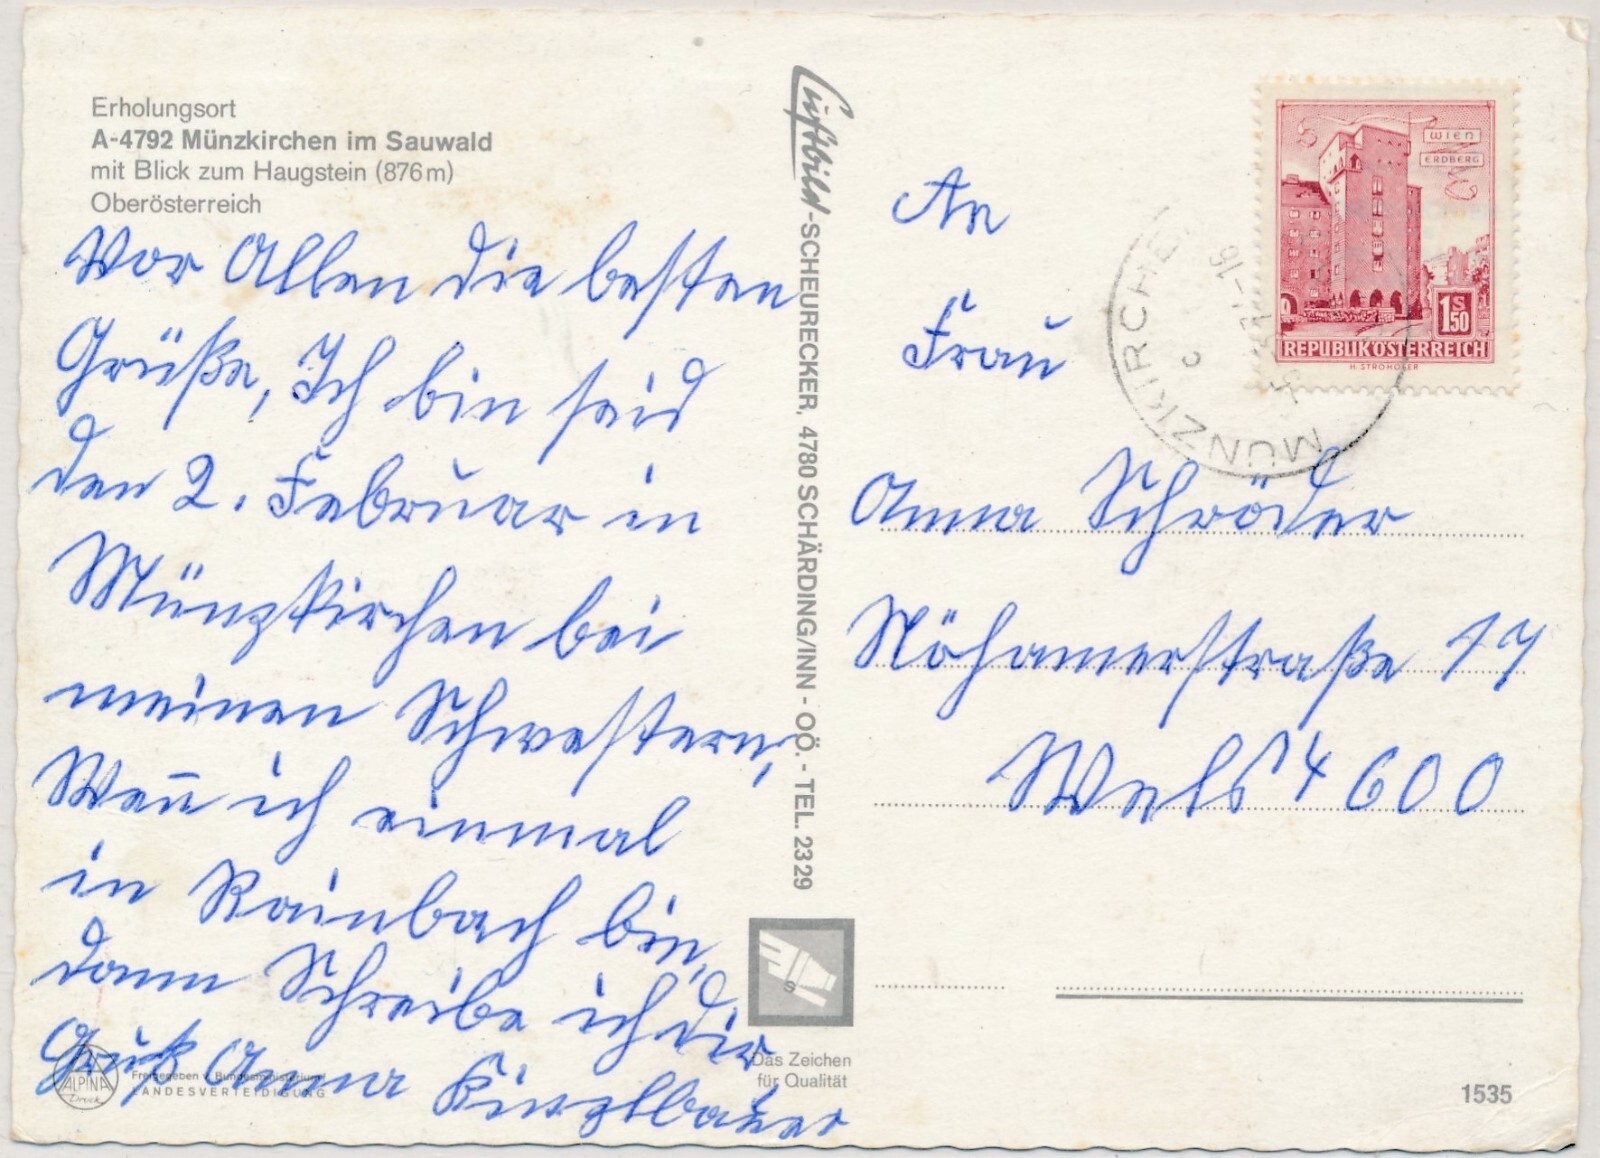 Erholungsort
A-4792 Münzkirchen im Sauwald
mit Blick zum Haugstein (876 m)
Oberösterreich
Vor Allen die besten
Grüße, Ich bin seid
den 2. Februar in
Münzkirchen bei
meinen Schwestern,
Wen̄ ich einmal
in Rainbach bin,
dann Schreibe ich dir
Gruß Anna Kinzlbauer
ALPINA
Zürich
Freigegeben v. Bundesministerium f.
LANDESVERTEIDIGUNG
Luftbild-SCHEURECKER, 4780 SCHÄRDING/INN - OÖ. - TEL. 23 29
S
Das Zeichen
für Qualität
WIEN
ERDBERG
1 S 50
REPUBLIK ÖSTERREICH
H. STROHOFER
MÜNZKIRCHE
16
An
Frau
Anna Schröder
Nöhamerstraße 17
Wels 4600
1535